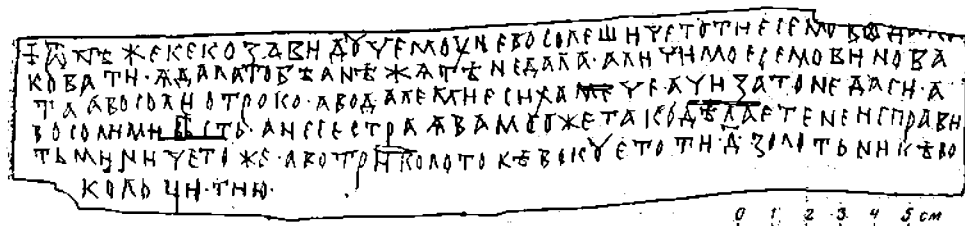 + Ѿ НѢЖЕКЕ КО ЗАВИДОУ ЧЕМОУ НЕ ВОСОЛЕШИ ЧЕТО ТИ ЕСЕМО
КОВАТИ · Ѧ ДАЛА ТОБѢ А НѢЖАТѢ НЕ ДАЛА · АЛИ ЧИМО ЕСЕМО ВИНОВА
ТА А ВОСОЛИ ОТРОКО · А ВОДАЛЕ МИ ЕСИ ХАМЕЧЕ А ЧИ ЗА ТО НЕ ДАСИ · А
ВОСОЛИ МИ ВѢСТЬ · А НЕ СЕСТРА Ѧ ВАМО ОЖЕ ТАКО ДѢЛАЕТЕ НЕ ИСПРАВИ
ТЬ МИ НИЧЕТО ЖЕ · А ВО ТРИ КОЛОТОКѢ ВОКУЕ ТО ТИ · Д · ЗОЛОТЬНИКѢ ВО
КОЛЬЦИ · ТИЮ ·
0 1 2 3 4 5 см